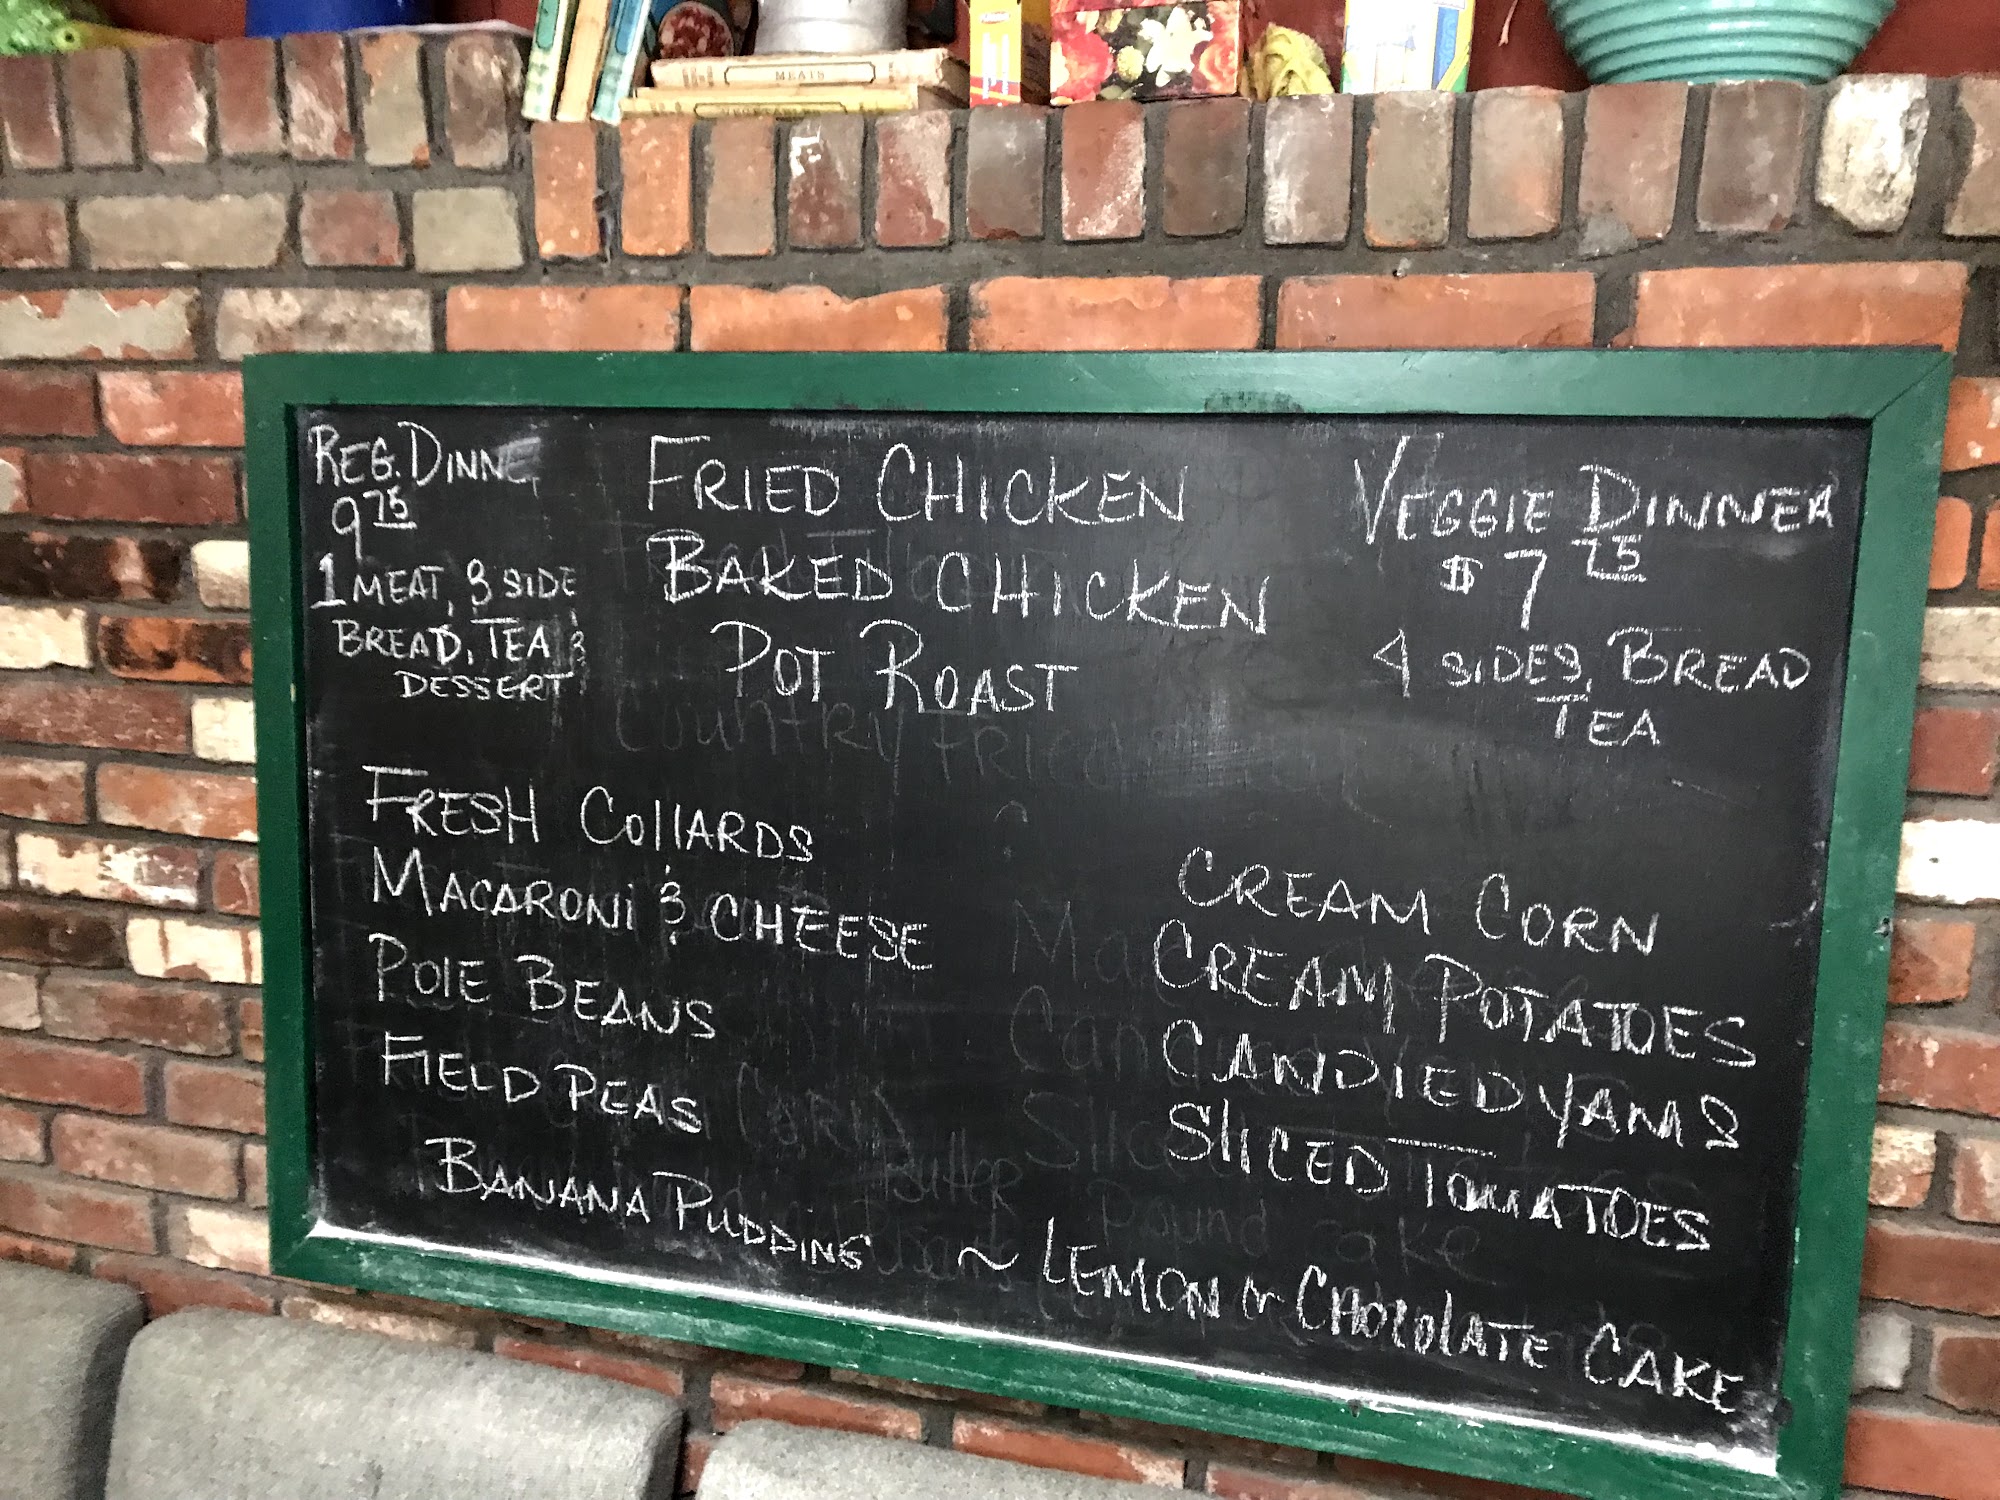 MEATS
REG. DINNE
9 75
1 MEAT, 3 SIDE
BREAD, TEA &
DESSERT
FRIED CHICKEN
BAKED CHICKEN
POT ROAST
VEGGIE DINNER
$7 75
4 SIDES, BREAD
TEA
Country Fried
FRESH COllARDS
MACARONi & CHEESE
POlE BEANS
FIELD PEAS
CREAM CORN
CREAM POTATOES
CANDIED YAMS
SlICED TOMATOES
Butter
Pound Cake
BANANA PUDDING ~ LEMON or CHOCOlATE CAKE